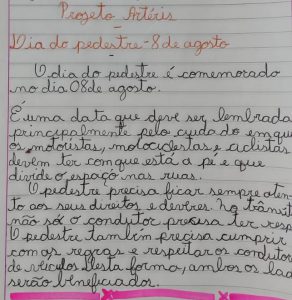 Projeto Artéris
Dia do pedestre - 8 de agosto
O dia do pedestre é comemorado
no dia 08 de agosto.
É uma data que deve ser lembrada
principalmente pelo cuidado em que
os motoristas, motociclistas e ciclistas
devem ter com que está a pé e que
divide o espaço nas ruas.
O pedestre precisa ficar sempre aten-
to aos seus direitos e deveres. No trânsit
não só o condutor precisa ter resp
O pedestre também precisa cumprir
com as regras e respeitar os condutor
de veículos. Desta forma, ambos os lad
serão beneficiados.